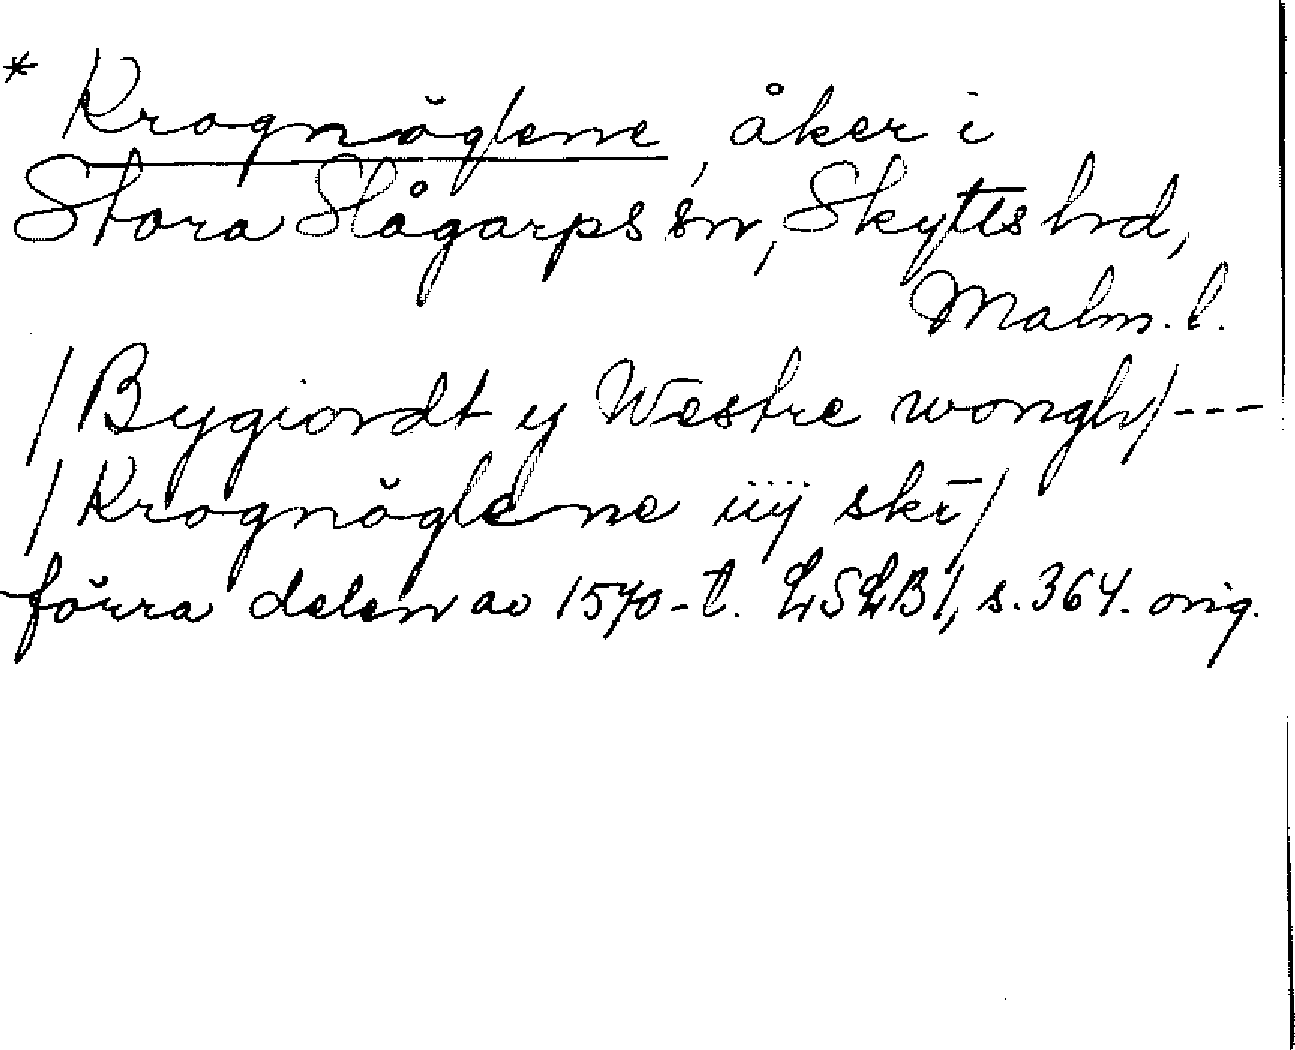 * Krognöglene, åker i
Stora Slågarps sn, Skytts hd,
Malm. l.
/Bygiordt y Westre wongh/---
/Krognöglene iiij skī/
förra delen av 1570-t. LSLB 1, s. 364. orig.